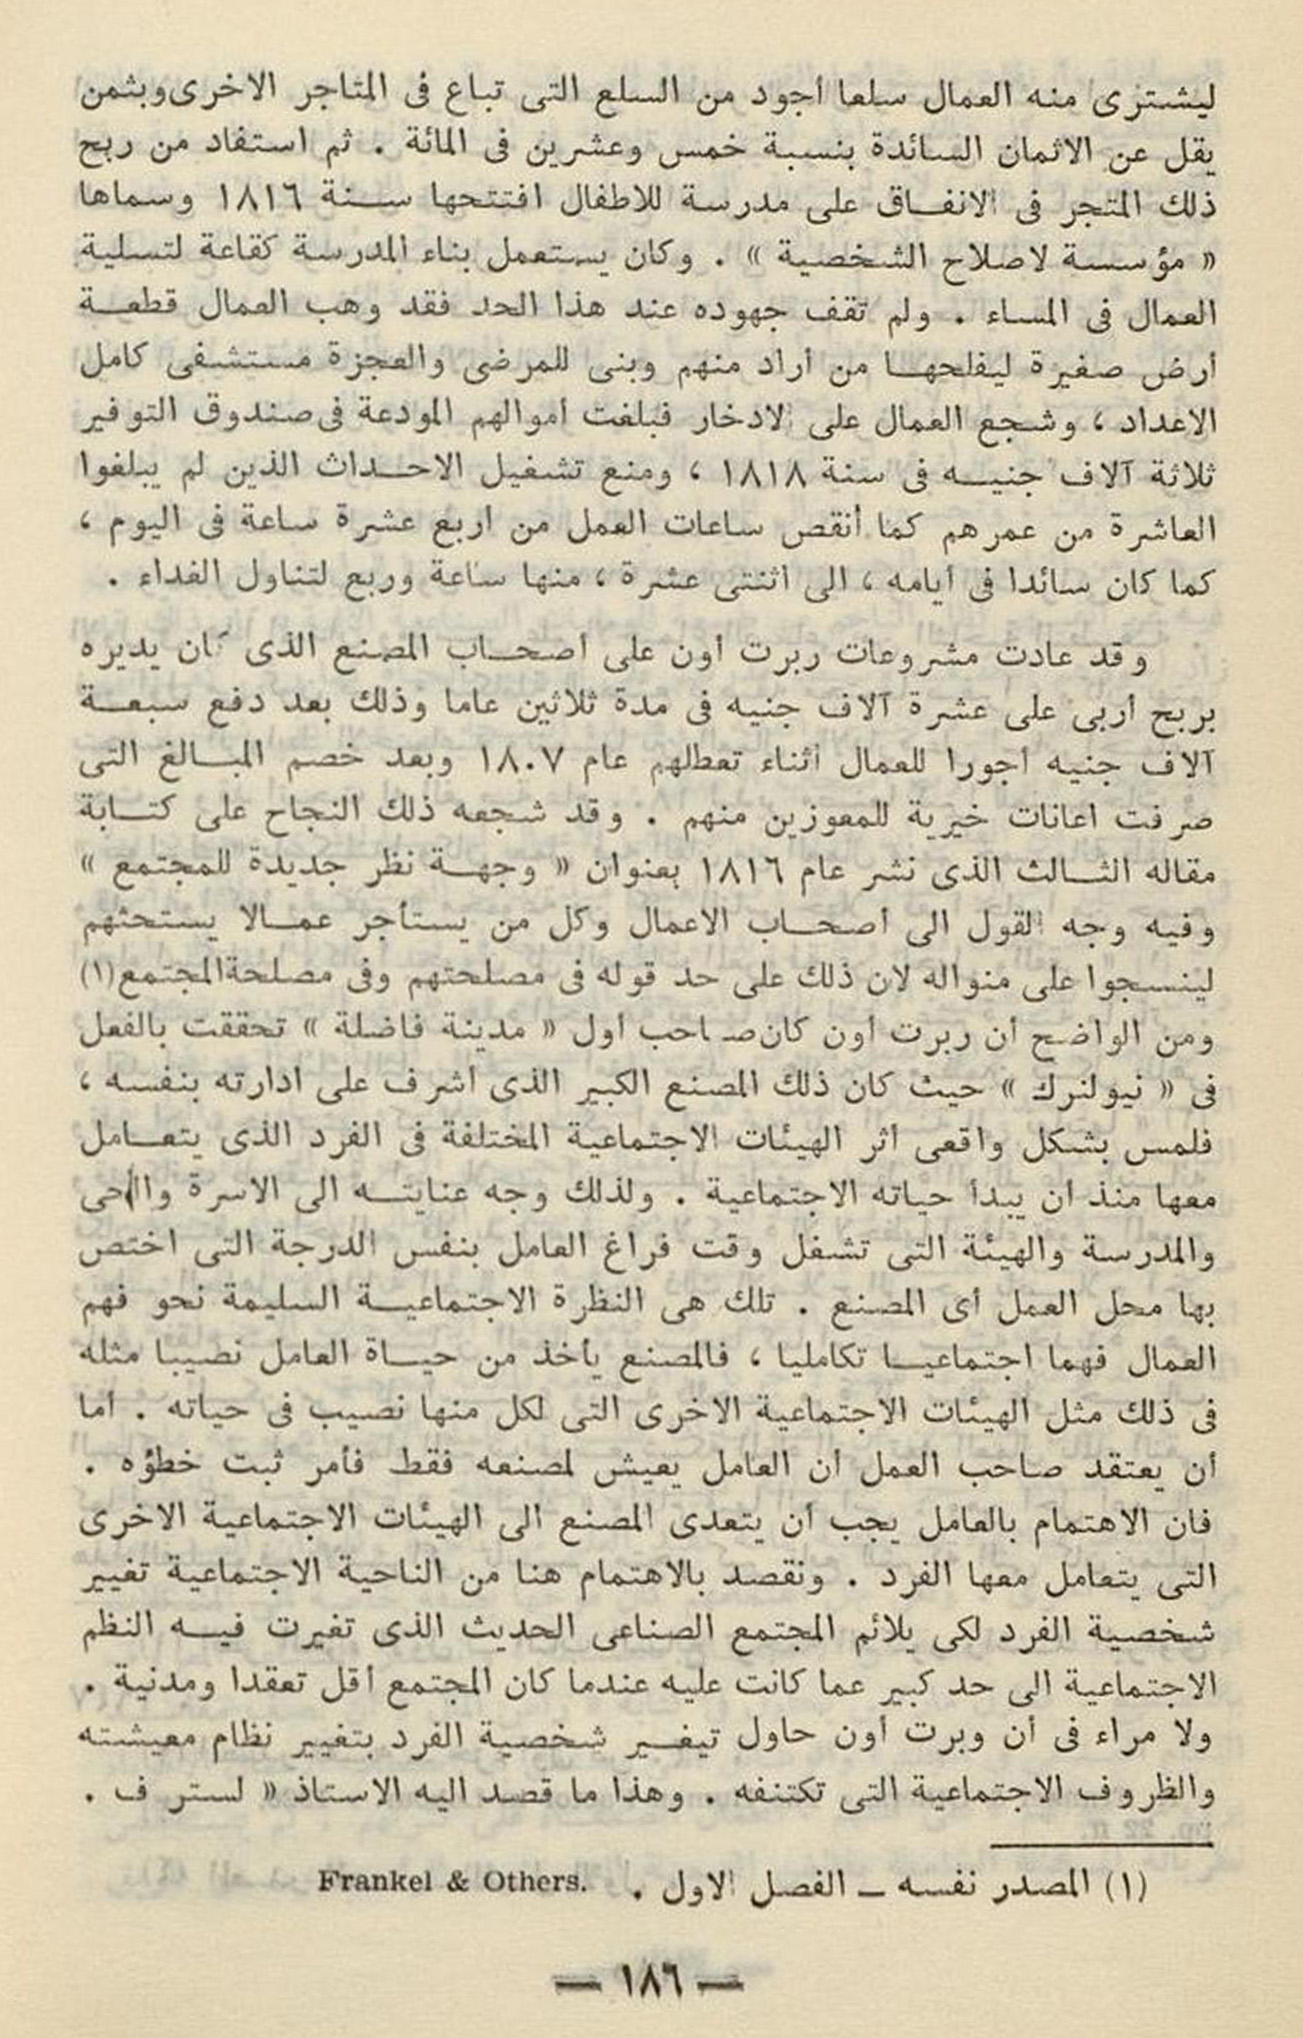 ليشترى منه العمال سلعا أجود من السلع التى تباع فى المتاجر الاخرى وبثمن
يقل عن الاثمان السائدة بنسبة خمس وعشرين فى المائة . ثم استفاد من ربح
ذلك المتجر فى الانفاق على مدرسة للاطفال افتتحها سنة ١٨١٦ وسماها
« مؤسسة لاصلاح الشخصية » . وكان يستعمل بناء المدرسة كقاعة لتسلية
العمال فى المساء . ولم تقف جهوده عند هذا الحد فقد وهب العمال قطعة
أرض صغيرة ليفلحها من أراد منهم وبنى للمرضى والعجزة مستشفى كامل
الاعداد ، وشجع العمال على الادخار فبلغت أموالهم المودعة فى صندوق التوفير
ثلاثة آلاف جنيه فى سنة ١٨١٨ ، ومنع تشغيل الاحداث الذين لم يبلغوا
العاشرة من عمرهم كما أنقص ساعات العمل من أربع عشرة ساعة فى اليوم ،
كما كان سائدا فى أيامه ، الى اثنتى عشرة ، منها ساعة وربع لتناول الغداء .
وقد عادت مشروعات ربرت أون على أصحاب المصنع الذى كان يديره
بربح أربى على عشرة آلاف جنيه فى مدة ثلاثين عاما وذلك بعد دفع سبعة
آلاف جنيه أجورا للعمال أثناء تعطلهم عام ١٨٠٧ وبعد خصم المبالغ التى
صرفت اعانات خيرية للمعوزين منهم . وقد شجعه ذلك النجاح على كتابة
مقاله الثالث الذى نشر عام ١٨١٦ بعنوان « وجهة نظر جديدة للمجتمع »
وفيه وجه القول الى أصحاب الاعمال وكل من يستأجر عمالا يستحثهم
لينسجوا على منواله لان ذلك على حد قوله فى مصلحتهم وفى مصلحة المجتمع(١)
ومن الواضح أن ربرت أون كان صاحب أول « مدينة فاضلة » تحققت بالفعل
فى « نيولنرك » حيث كان ذلك المصنع الكبير الذى أشرف على ادارته بنفسه ،
فلمس بشكل واقعى أثر الهيئات الاجتماعية المختلفة فى الفرد الذى يتعامل
معها منذ أن يبدأ حياته الاجتماعية . ولذلك وجه عنايته الى الاسرة والحى
والمدرسة والهيئة التى تشغل وقت فراغ العامل بنفس الدرجة التى اختص
بها محل العمل أى المصنع . تلك هى النظرة الاجتماعية السليمة نحو فهم
العمال فهما اجتماعيا تكامليا ، فالمصنع يأخذ من حياة العامل نصيبا مثله
فى ذلك مثل الهيئات الاجتماعية الاخرى التى لكل منها نصيب فى حياته . أما
أن يعتقد صاحب العمل أن العامل يعيش لمصنعه فقط فأمر ثبت خطؤه .
فان الاهتمام بالعامل يجب أن يتعدى المصنع الى الهيئات الاجتماعية الاخرى
التى يتعامل معها الفرد . ونقصد بالاهتمام هنا من الناحية الاجتماعية تغيير
شخصية الفرد لكى يلائم المجتمع الصناعى الحديث الذى تغيرت فيه النظم
الاجتماعية الى حد كبير عما كانت عليه عندما كان المجتمع أقل تعقدا ومدنية .
ولا مراء فى أن وبرت أون حاول تيغير شخصية الفرد بتغيير نظام معيشته
والظروف الاجتماعية التى تكتنفه . وهذا ما قصد اليه الاستاذ « لستر ف .
(١) المصدر نفسه ــ الفصل الاول . Frankel & Others.
— ١٨٦ —